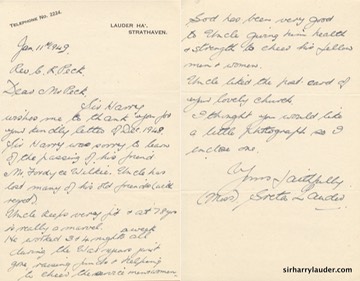 TELEPHONE NO. 2224.
LAUDER HA',
STRATHAVEN.
Jan 11th 1949.
Rev C. R. Peck
Dear Mr Peck
Sir Harry
wishes me to thank you for
your kindly letter of Dec 1948
Sir Harry was sorry to learn
of the passing of his friend
Mr Fordyce Wilkie. Uncle has
lost many of his old friends (with
regret)
Uncle keeps very fit & at 78 yrs
is really a marvel.
a week
He worked 3 nights all
during the War years just
gone raising funds & helping
to cheer the service men & women
God has been very good
to Uncle giving him health
& strength to cheer his fellow
men & women.
Uncle liked the post card of
your lovely church
I thought you would like
a little photograph so I
enclose one.
Yours Faithfully
(Miss) Greta Lauder
sirharrylauder.com